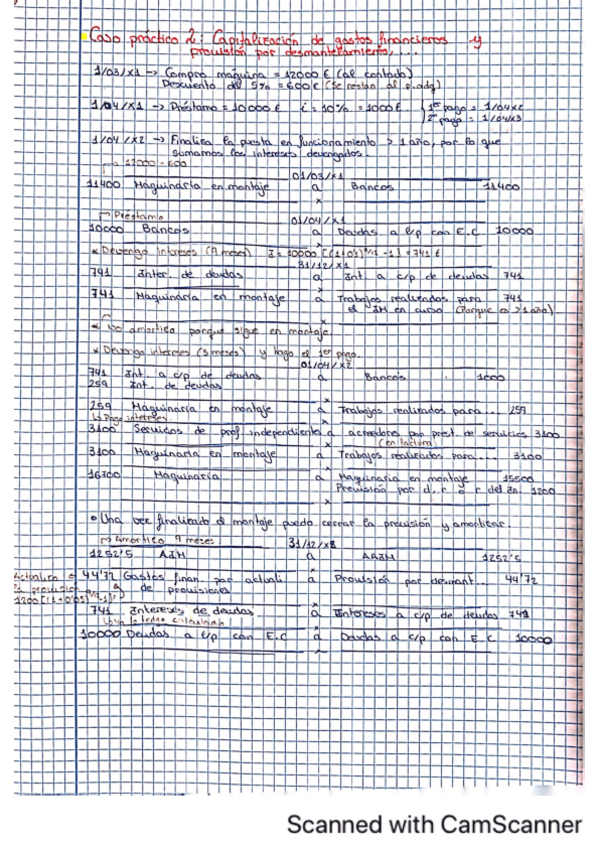 Caso práctico 2: Capitalización de gastos financieros y
provisión por desmantelamiento,...
1/03/x1 → Compra máquina = 12000 € (al contado)
Descuento del 5% = 600 € (se restan al p.adq)
1/04/x1 → Préstamo = 10000 € i = 10% = 1000 € 1er pago = 1/04/x2
2º pago = 1/04/x3
1/04/x2 → Finaliza la puesta en funcionamiento > 1 año, por lo que
sumamos los intereses devengados.
12000 - 600
01/03/x1
11400 Maquinaria en montaje a Bancos 11400
x
Préstamo 01/04/x1
10000 Bancos a Deudas a l/p con E.C 10000
x
* Devengo intereses (9 meses) I = 10000 [(1+0'1)^9/12 - 1] = 741 €
31/12/x1
741 Inter. de deudas a Int. a c/p de deudas 741
x
741 Maquinaria en montaje a Trabajos realizados para 741
el IM en curso (Porque es > 1 año)
x
* No amortizo porque sigue en montaje.
* Devengo intereses (3 meses) y hago el 1er pago.
01/04/x2
741 Int. a c/p de deudas a Bancos 1000
259 Int. de deudas
x
259 Maquinaria en montaje a Trabajos realizados para... 259
↳ Pago intereses x
3100 Servicios de prof independiente a acreedores por prest. de servicios 3100
(en factura)
3100 Maquinaria en montaje a Trabajos realizados para... 3100
x
16700 Maquinaria a Maquinaria en montaje 15500
Provisión por d, r o r del In. 1200
x
• Una vez finalizado el montaje puedo cerrar la provisión y amortizar.
Amortizo 9 meses 31/12/x2
1252'5 AIM a AAIM 1252'5
x
Actualizo la provisión 44'72 Gastos finan. por actuali a Provisión por desmant... 44'72
1200[(1+0'05)^9/12-1] de provisiones
x
741 Intereses de deudas a Intereses a c/p de deudas 741
x
10000 Deudas a l/p con E.C a Deudas a c/p con E.C 10000
x
Scanned with CamScanner